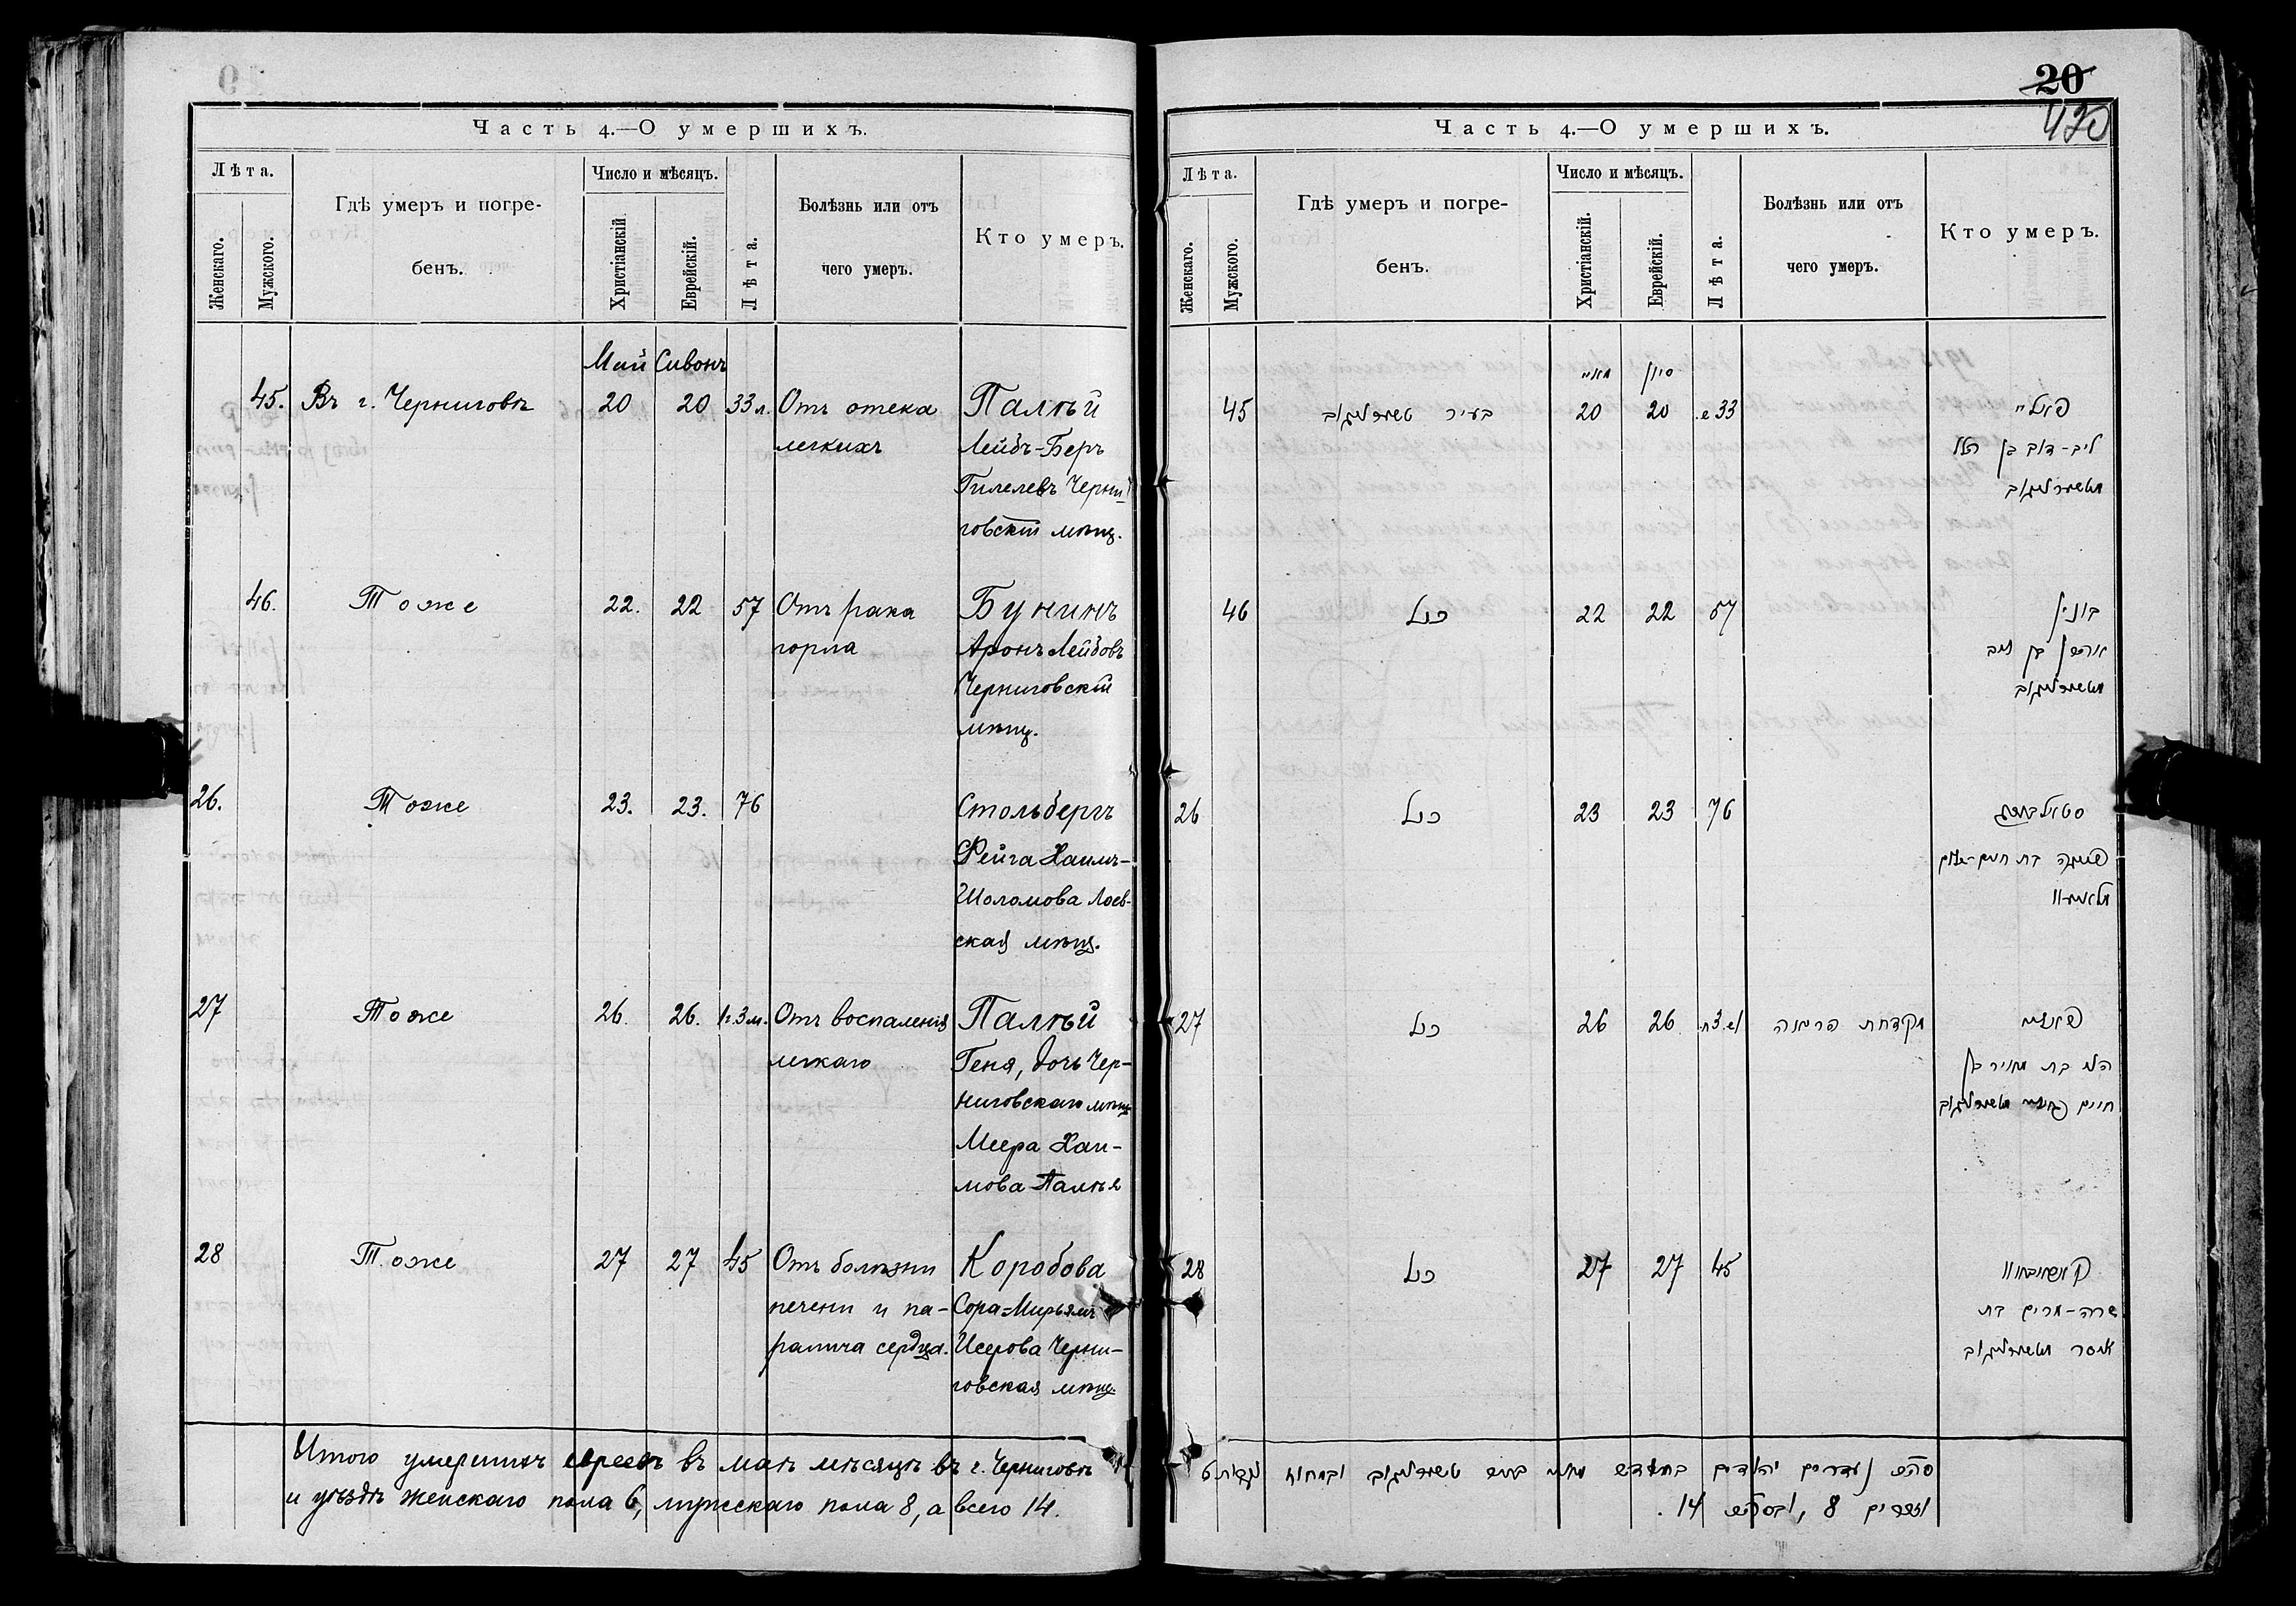 Часть 4.—О умершихъ.
Лѣта.
Женскаго.
Мужского.
Гдѣ умеръ и погребенъ.
Число и мѣсяцъ.
Христіанскій.
Еврейскій.
Лѣта.
Болѣзнь или отъ
чего умеръ.
Кто умеръ.
Май Сивонъ
45. Въ г. Черниговѣ 20 20 33 л. Отъ отека Палѣй
легкихъ Лейбъ-Беръ
Гилелевъ Черни-
говскій мѣщ.
46. Тоже 22. 22 57 Отъ рака Бунинъ
горла Аронъ Лейбовъ
Черниговскій
мѣщ.
26. Тоже 23. 23. 76 Стольбергъ
Фейга Хаимъ-
Шоломова Лоев-
ская мѣщ.
27 Тоже 26. 26. 1 г. 3 м. Отъ воспаленія Палѣй
легкаго Геня, дочь Чер-
ниговскаго мѣщ.
Меера Хаи-
мова Палѣя
28 Тоже 27 27 45 Отъ болѣзни Коробова
печени и па- Сора-Мирьямъ
ралича сердца. Исерова Черни-
говская мѣщ.
Итого умершихъ евреевъ въ маѣ мѣсяцѣ въ г. Черниговѣ
и уѣздѣ женскаго пола 6, мужескаго пола 8, а всего 14.
20
420
Часть 4.—О умершихъ.
Лѣта.
Женскаго.
Мужского.
Гдѣ умеръ и погребенъ.
Число и мѣсяцъ.
Христіанскій.
Еврейскій.
Лѣта.
Болѣзнь или отъ
чего умеръ.
Кто умеръ.
מאיי סיון
45 בעיר טשערניגוב 20 20 33 ש. פאליי
ליב-דוב בן הלל
מטשערניגוב
46 כנ"ל 22 22 57 בונין
אהרן בן ליב
מטשערניגוב
26 כנ"ל 23 23 76 סטאלבערג
פייגה בת חיים-שלום
27 כנ"ל 26 26 מקדחת הריאה
בת מאיר בן
חיים מטשערניגוב
28 כנ"ל 27 27 45
שרה-מרים בת
איסר מטשערניגוב
ס"ה נעדרים יהודים בחודש מאי בעיר טשערניגוב ובמחוז
זכרים 8, ובס"ה 14.